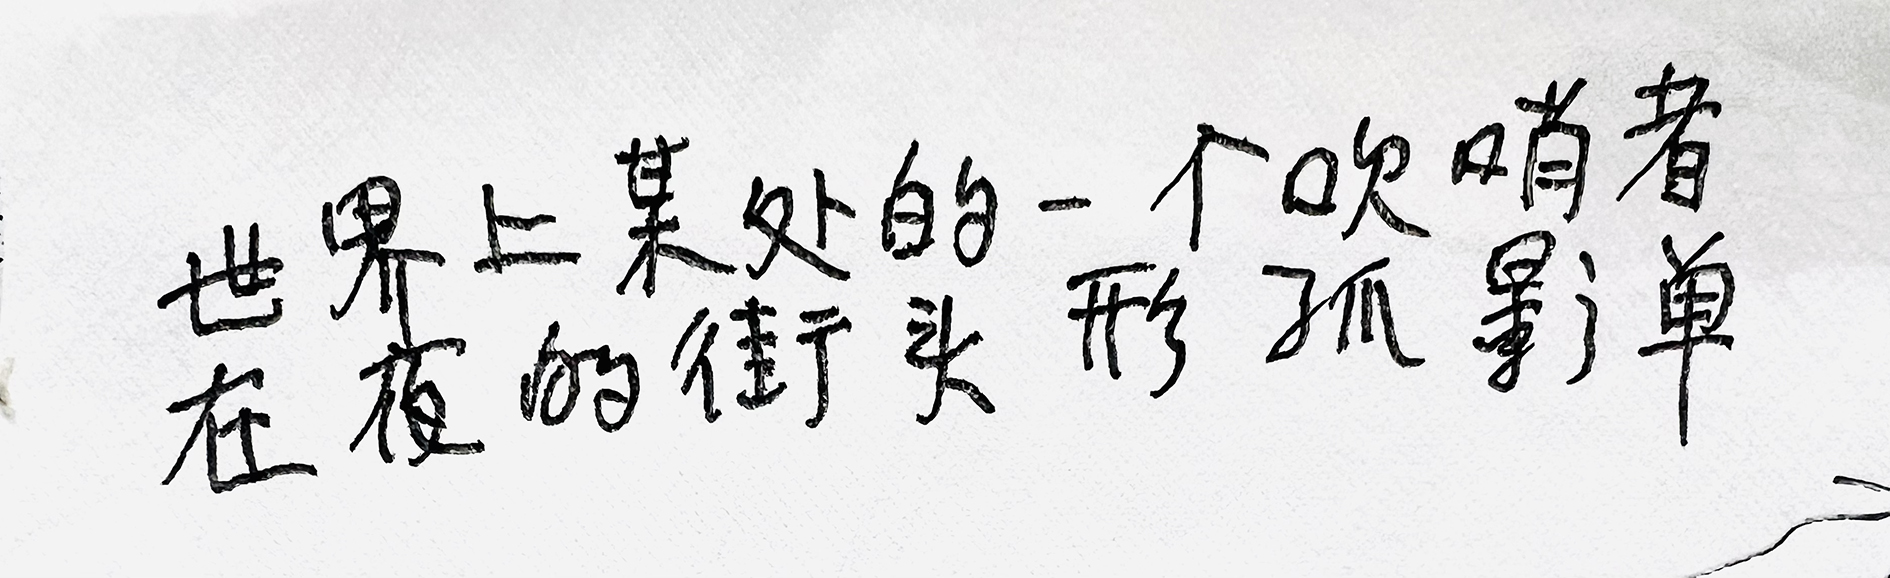 世界上某处的一个吹哨者
在夜的街头形孤影单